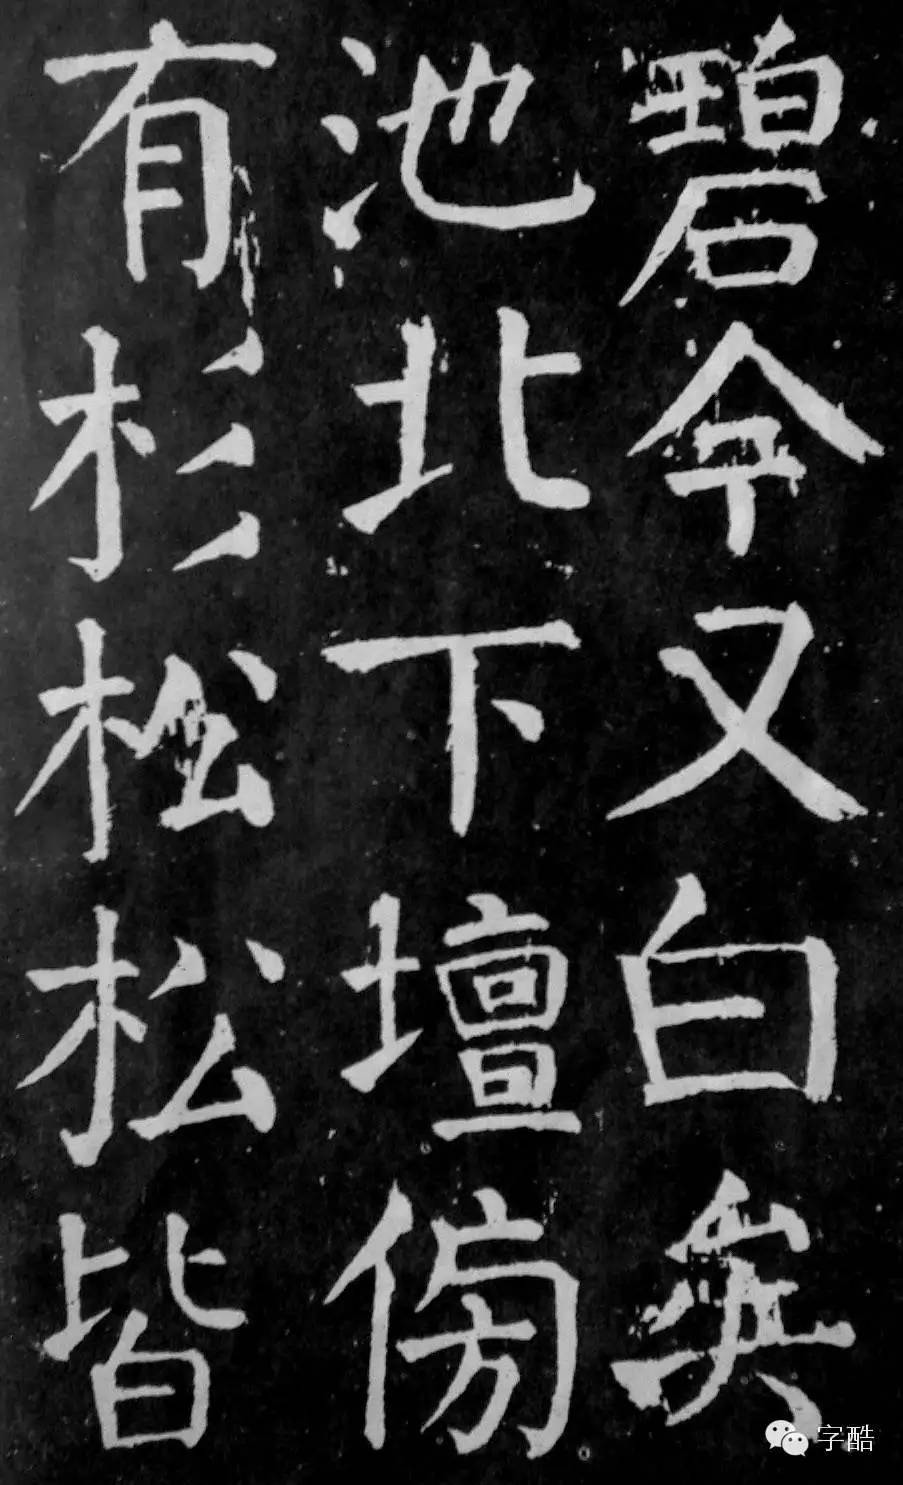 碧今又白矣
池北下壇傍
有杉松松皆
字酷